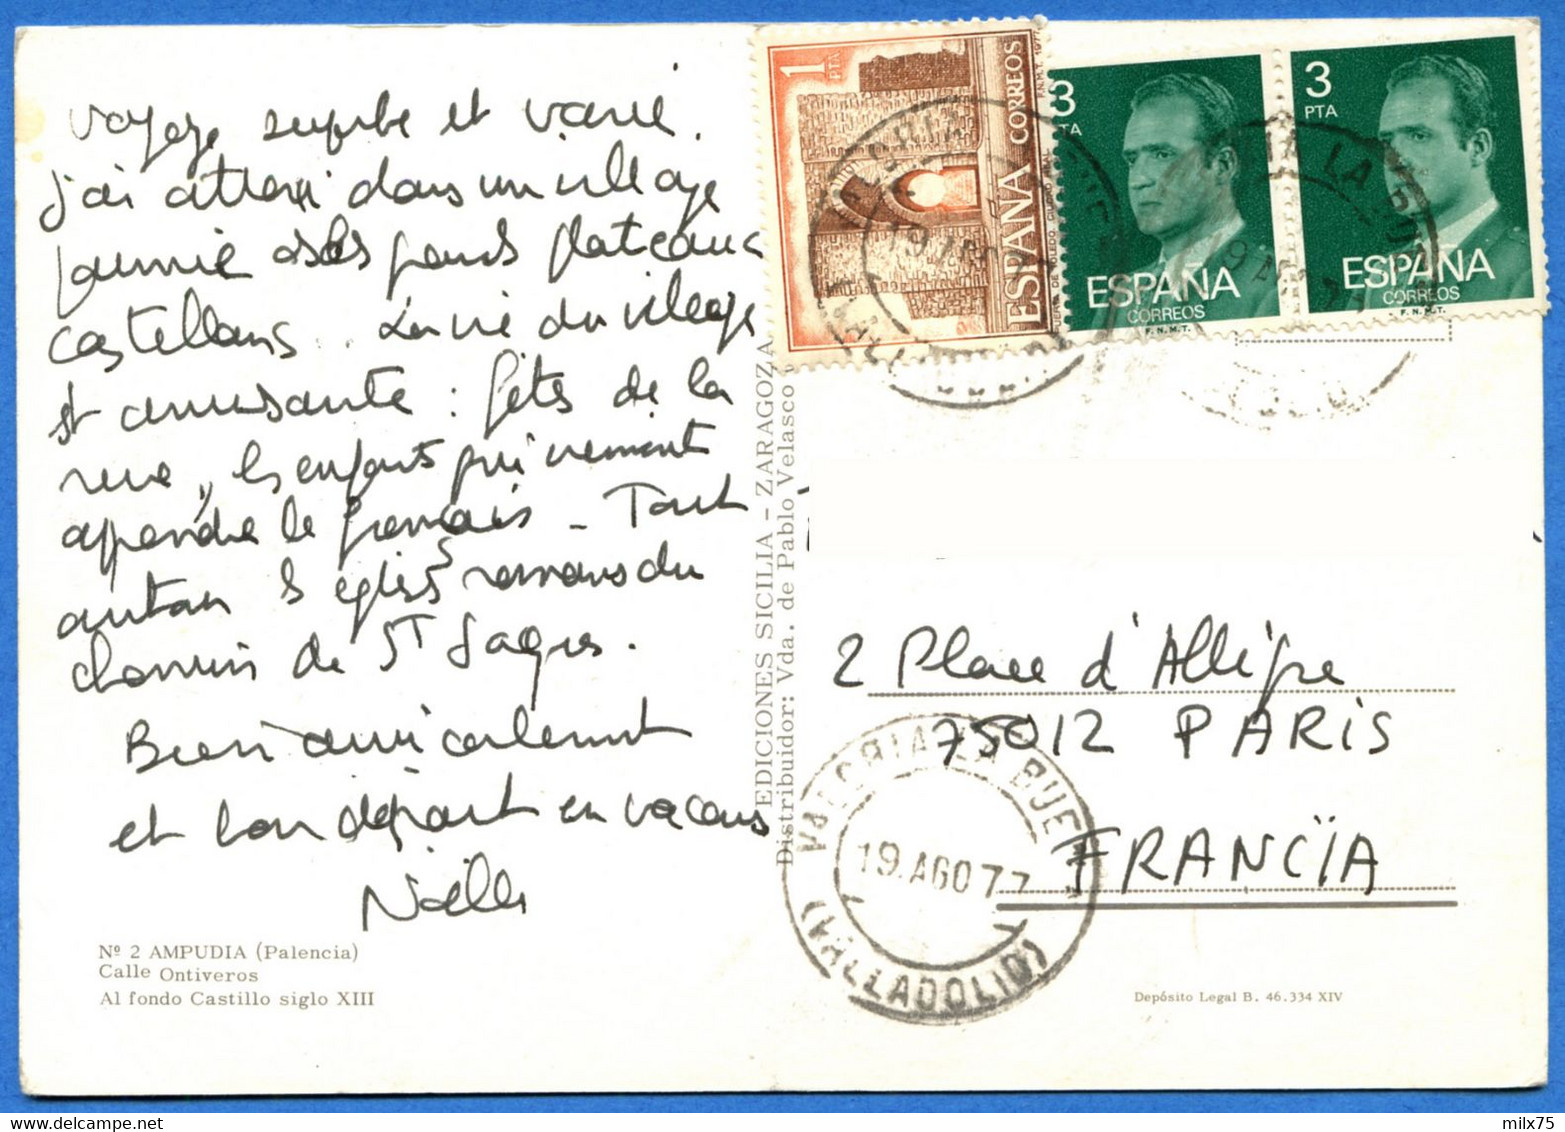 voyage superbe et varié.
j'ai atterri dans un village
paumé des grands plateaux
castellans.. La vie du village
est amusante : fêtes de la
rue, les enfants qui viennent
apprendre le français - Tout
autour les églises romanes du
chemin de St Jacques.
Bien amicalement
et bon départ en vacances
Noëlle
Nº 2 AMPUDIA (Palencia)
Calle Ontiveros
Al fondo Castillo siglo XIII
EDICIONES SICILIA - ZARAGOZA.
Distribuidor: Vda. de Pablo Velasco
1 PTA
ESPAÑA CORREOS
3 PTA
ESPAÑA
CORREOS
F.N.M.T.
3 PTA
ESPAÑA
CORREOS
F.N.M.T.
2 Place d'Alligre
75012 PARIS
FRANCÏA
VALORIA LA BUENA
19. AGO 77
(VALLADOLID)
Depósito Legal B. 46.334 XIV
milx75